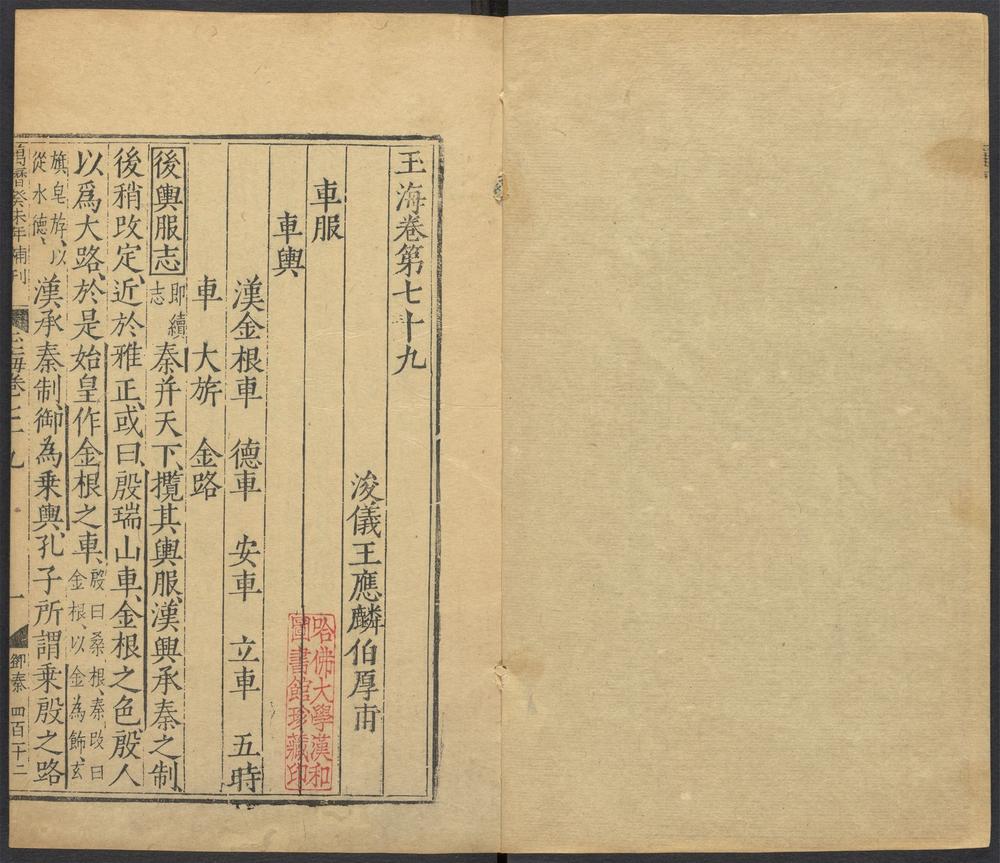 玉海卷第七十九
浚儀王應麟伯厚甫
車服
車輿
哈佛大學漢和
圖書館珍藏印
漢金根車　德車　安車　立車　五時
車　大旂　金路
後輿服志 即續志 秦并天下、攬其輿服、漢興承秦之制、
後稍改定、近於雅正、或曰、殷瑞山車、金根之色、殷人
以爲大路、於是始皇作金根之車、殷曰桑根、秦改曰金根、以金為飾、玄
旗皂斿、以從水德、漢承秦制、御為乘輿、孔子所謂乘殷之路
萬曆癸未年補刊
卷
九
一
四百十二